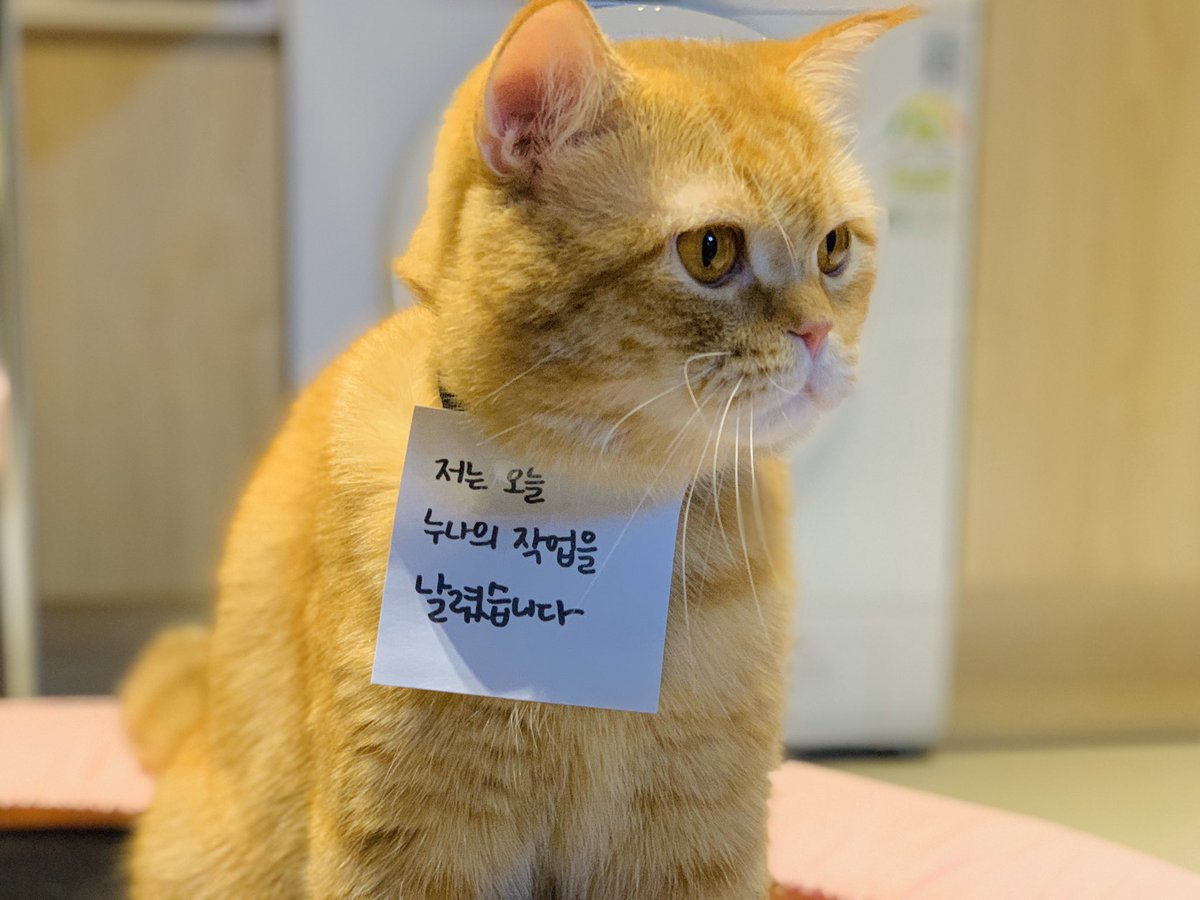 저는 오늘
누나의 작업을
날렸습니다